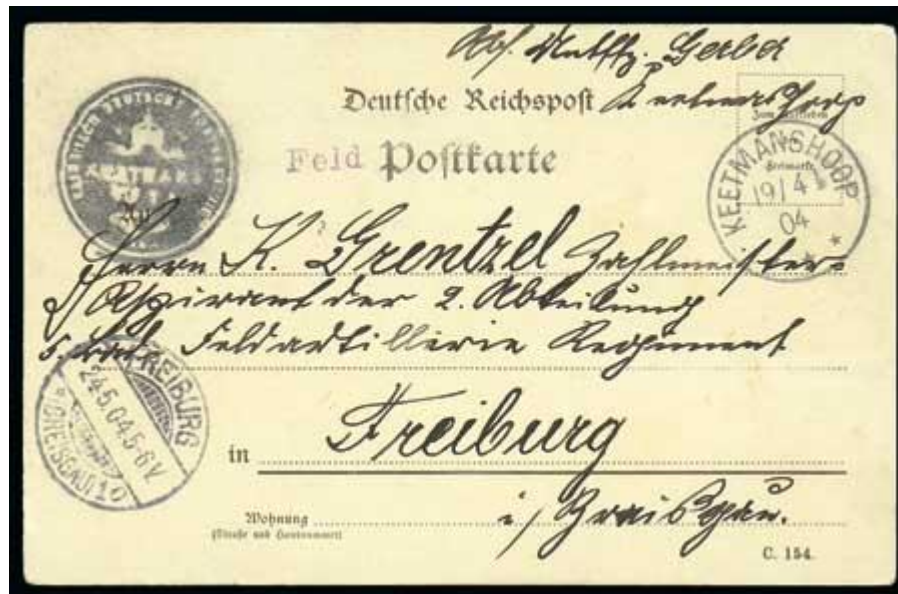 Abs. Gerber
Deutsche Reichspost Keetmanshoop
Feld Postkarte
KEETMANSHOOP
19/4
04
Herrn K. Grentzel Zahlmeister-
Aspirant der 2. Abteilung
5. Bad. Feldartillerie Regiment
FREIBURG
24.5.04.5-6V.
*(BREISGAU)1o
in Freiburg
i/Breisgau.
Wohnung
(Straße und Hausnummer)
C. 154.